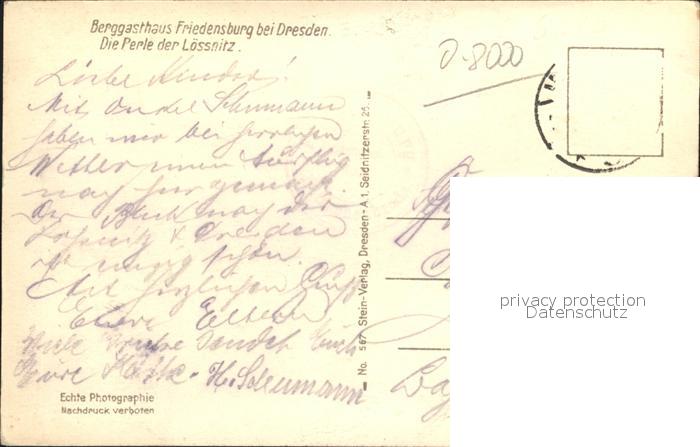 Berggasthaus Friedensburg bei Dresden.
Die Perle der Lössnitz.
D-8000
Liebe Kinder!
Mit Onkel Schumann
haben wir bei herrlichem
Wetter einen Ausflug
nach hier gemacht.
Der Blick nach der
Lößnitz & Dresden
ist
schön.
Mit herzlichem Gruß
Eure Eltern
Viele Grüße sendet Euch
Eure
H. Schumann
Echte Photographie
Nachdruck verboten
No. 567 Stein-Verlag, Dresden-A 1, Seidnitzerstr. 26.
privacy protection
Datenschutz